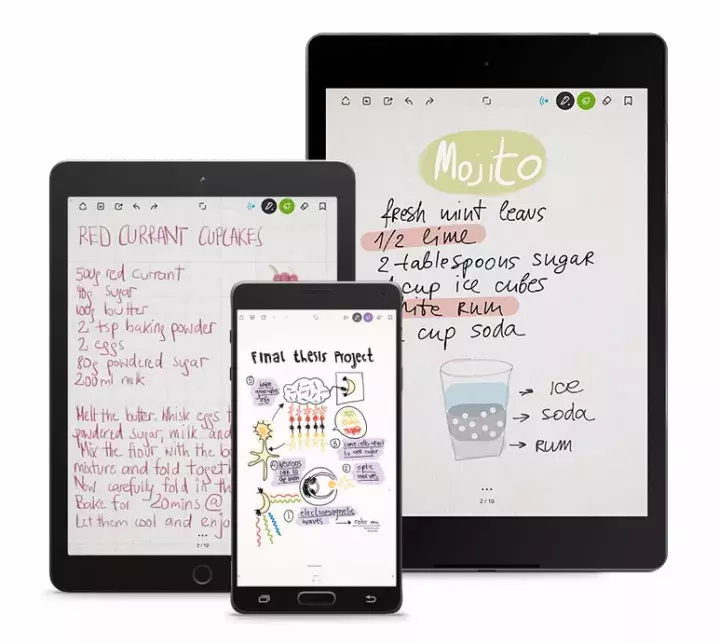 RED CURRANT CUPCAKES
500g red currant
90g sugar
100g butter
2 tsp baking powder
2 eggs
80g powdered sugar
200ml milk
Melt the butter. Whisk eggs
powdered sugar, milk and
Mix the flour with the
mixture and fold
Now carefully fold in
Bake for ~20mins @
Let them cool and
2/10
Final thesis Project
③ cone cells react
to one color
④ neurons
talk to the brain
② optic
nerves
① electromagnetic
waves
Mojito
fresh mint leavs
1/2 lime
2 tablespoons sugar
cup ice cubes
Rum
cup soda
ICE
SODA
RUM
2/10